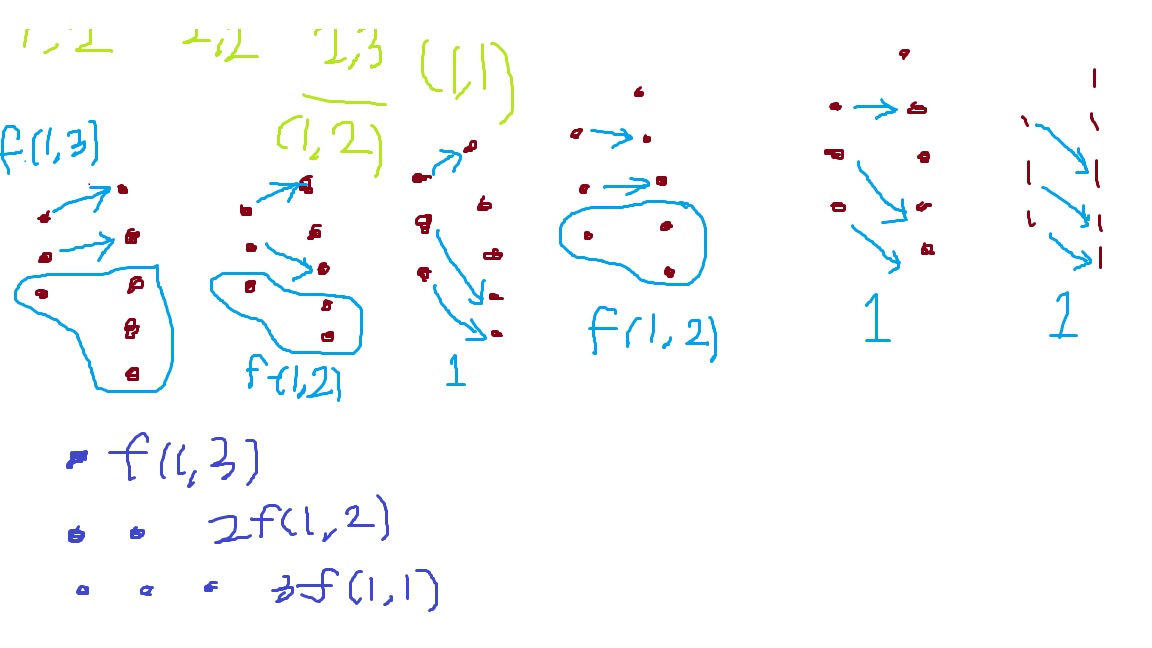 2,3 (1,1)
(1,2)
f(1,3)
f(1,2) 1 f(1,2) 1 1
f(1,3)
2f(1,2)
3f(1,1)